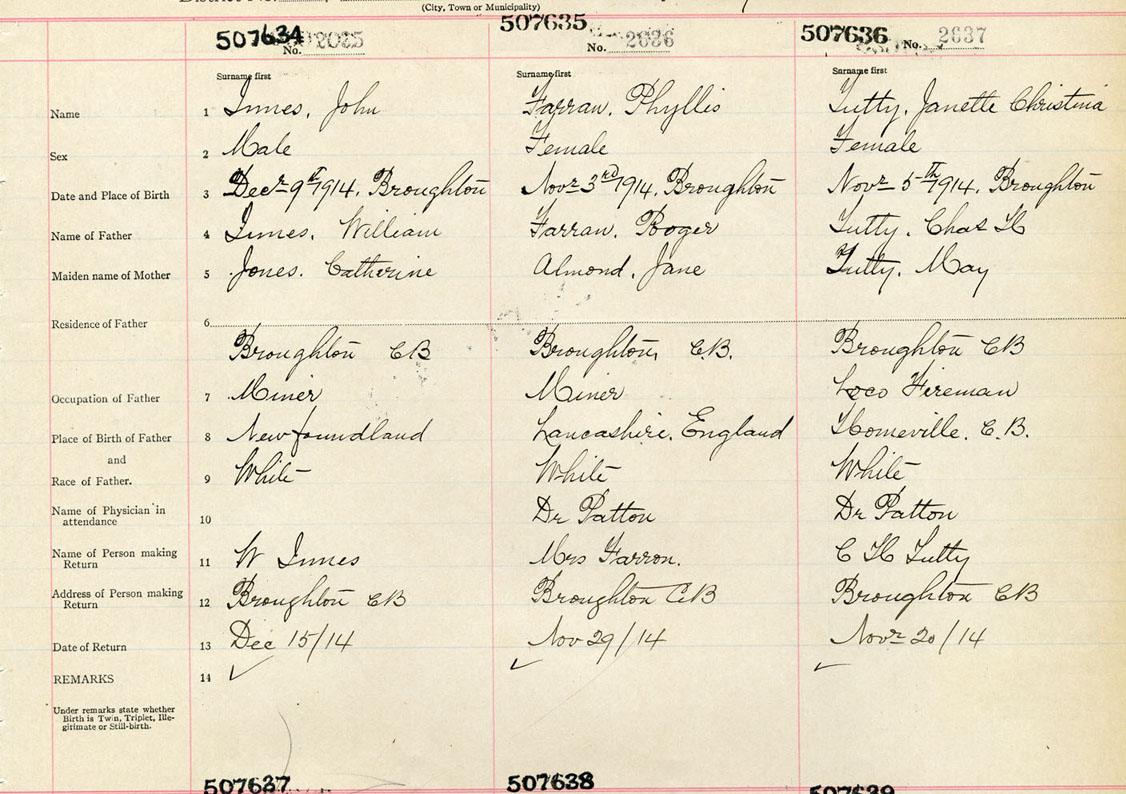 (City, Town or Municipality)
507634 507635 507636
No. 2635 No. 2636 No. 2637
Surname first Surname first Surname first
Name 1 Innes, John Farran, Phyllis Tutty, Janette Christina
Sex 2 Male Female Female
Date and Place of Birth 3 Decr 9th 1914, Broughton Novr 3rd 1914, Broughton Novr 5th 1914, Broughton
Name of Father 4 Innes, William Farran, Roger Tutty, Chas H
Maiden name of Mother 5 Jones, Catherine Almond, Jane Tutty, May
Residence of Father 6
Broughton CB Broughton, C.B. Broughton CB
Occupation of Father 7 Miner Miner Loco Fireman
Place of Birth of Father 8 Newfoundland Lancashire, England Homeville, C.B.
and
Race of Father. 9 White White White
Name of Physician in
attendance 10 Dr Patton Dr Patton
Name of Person making
Return 11 W Innes Mrs Farron. C H Tutty
Address of Person making
Return 12 Broughton CB Broughton C.B Broughton CB
Date of Return 13 Dec 15/14 Nov 29/14 Novr 20/14
REMARKS 14
Under remarks state whether
Birth is Twin, Triplet, Ille-
gitimate or Still-birth.
507637 507638 507639